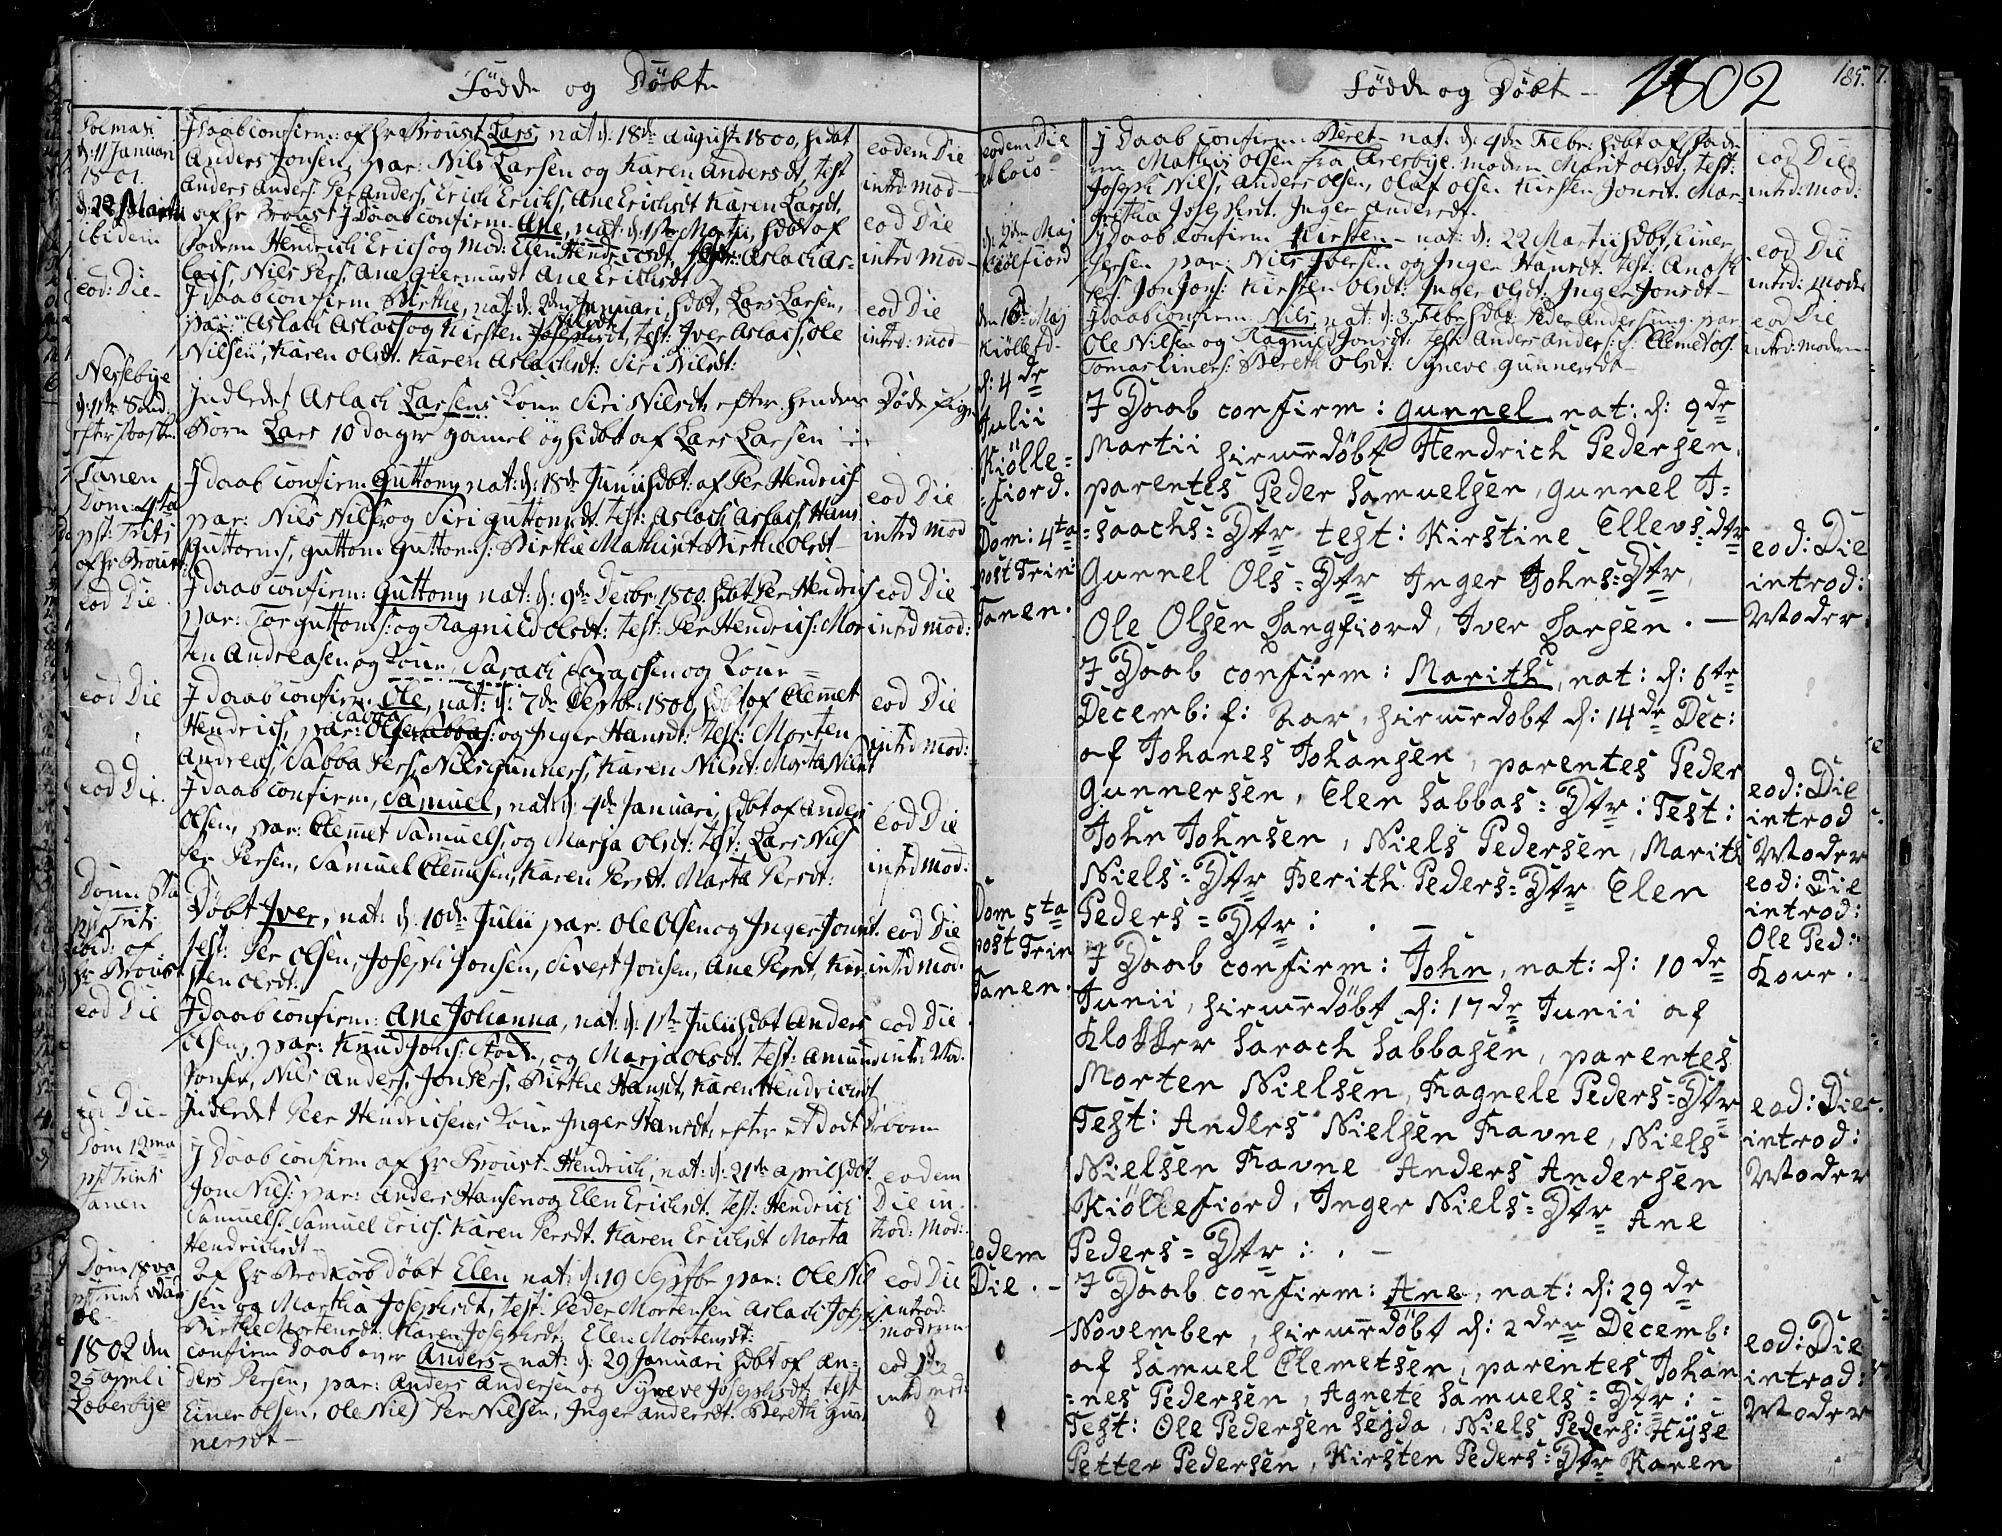 Fødde og Døbte
Polmak
d: 11 Januari
1801.
J Daab confirm: af hr Broust Lars, nat d: 18de August 1800, hdbt
Anders Jonsen, par: Nils Larsen og Karen Andersdt, test
Anders Anders: Per Anders, Erich Erichs, Ane Erichsdt Karen Larsdt.
eodem Die
intrd mod
d: 22 Martii
ibidem
af hr Broust J Daab confirm: Ane, nat: d: 1ste Martii, hdbt af
Faderen Hendrich Erics og Mod: Elen Hendricsdt, Aslach As-
lacs, Nils Pers, Ane Giermundt Ane Erichsdt
eod Die
intrd mod
eod: Die
J daab confirm Birthe, nat: d: 2den Januari, hdbt, Lars Larsen,
par: Aslach Aslacs og Kirsten test: Iver Aslacs, Ole
Nilsen, Karen Olsdt. Karen Aslachsdt: Siri Nilsdt:
eod Die
intrd: mod
Nessebye
Indledet Aslach Larsens Kone Siri Nilsdt, efter hendes
Børn Lars 10 dager gamel og hdbt af Lars Larsen
Døde
Tanen
Dom 4ta
pst: Trits
af hr Broust:
J daab confirm: Guttom, nat: d: 18de Junii hdbt: af Per Hendrics
par: Nils Nils, og Siri Guttomsdt. test: Aslach Aslach, Hans
Guttorms, Guttom Guttorms: Birthe Mathisdt Birthe Olsdt
eod Die
intrd mod
eod Die
J daab confirm: Guttom, nat: d: 9de Decbr: 1800. hdbt Per Hendrics
par: Tor Guttoms: og Ragnild Olsdt: test: Per Hendrics: Mor
ten Andreasen og Kone, Sarach Sarachsen og Kone
eod Die
intrd mod:
eod Die
J daab confirm: Ole, nat: d: 7de Septbr: 1800, hdbt af Clemet
Hendrics, par: og Inger Hansdt: test: Morten
Andreas, Sabba Pers, Nils Gunners, Karen Nilsdt. Morta Nilsdt
eod Die
intrd mod:
eod Die.
J daab confirm, Samuel, nat: d: 4de Januari, hdbt af Anders
Olsen, par: Clemet Samuels, og Marja Olsdt: test: Lars Nils
Per Persen, Samuel Clemetsen, Karen Persdt. Marta Persdt:
eod Die
intrd mod:
Dom: 8ta
pst Trits
ibid: af
hr Broust
Døbt Iver, nat: d. 10de Julii par: Ole Olsen og Inger Jonsdt.
test: Per Olsen, Joseph Jonsen, Sivert Jonsen, Ane Persdt, Kir-
sten Olsdt.
eod Die
intrd mod.
eod Die
J daab confirm: Ane Johanna, nat: d: 1ste Julii hdbt Anders
Olsen, par: Knud Jons: og Marja Olsdt. test: Amund
Jonsen, Nils Anders, Jon Pers, Birthe Hansdt, Karen Hendricsdt
eod Die
intrd Mod.
eod Die
Inderdet Peer Hendrichsens Kone Inger Hansdt, efter et Dødt Dbørn
Dom 12ma
pst Trints
Tanen
J Daab confirm af hr Broust. Hendrich, nat: d: 21de april hdbt.
Jon Nils: par: Anders Hansen og Elen Erichsdt. test: Hendrich
Samuels. Samuel Erics. Karen Persdt. Karen Erichsdt Morta
Hendrichsdt
eodem
Die in
trod: Mod:
Dom 18va
pst Trints
Af hr Brodkorb døbt Elen nat: d: 19 Septbr par: Ole Nil
sen og Martha Josephsdt, test: Peder Mortensen Aslach Joseps,
Birthe Mortensdt. Karen Josephsdt: Elen Mortensdt:
eod Die
introd:
moderen
1802 den
25 april i
Læbesbye
confirm Daab over Anders nat: d: 29 Januari hdbt af An-
ders Persen, par: Anders Andersen og Synneve Josephsdt. test
Einer Olsen, Ole Nils Per Nilsen, Inger Andersdt. Bereth Gun
nersdt
eod Die
intrd mod:
Fødde og Døbte 1802
185.
eodem Die
et loco
J Daab confirm. Beret nat: d: 4de Febr: hdbt af Fade
ren Mathis Olsen fra Aresbye. moderen Marit Olsdt. test:
Joseph Nils, Anders Olsen, Olaf Olsen Kirsten Jonsdt. Mar-
gritha Josephsdt. Inger Andersdt.
eod Die
intrd: mod:
d: 2den Maj
Kiølefiord
J daab confirm Kirsten nat: d: 22 Martii hdbt, Einer
Iversen par: Nils Iversen og Inger Hansdt. test: Anders
Jon Jons: Kirsten Olsdt: Inger Olsdt: Inger Jonsdt
eod Die
intrd: Moder
den 16 Maj
Kiøllefd
J daab confirm: Nils, nat: d: 3 Febr hdbt Peder Andersens: par
Ole Nilsen og Ragnild Jonsdt: test: Anders Anders: Clemet
Tomas Einers: Bereth Olsdt: Syneve Gunnersdt
eod Die
intrd: moderen
d: 4de
Julii
Kiølle=
=fiord.
Dom: 4ta
post Trin:
Tanen.
J Daab confirm: Gunnel, nat: d: 9de
Martii hiemmedøbt Hendrich Pedersen,
parentes Peder Samuelsen, Gunnel J=
=saachs=Dtr test: Kirstine Ellevs=dtr
Gunnel Ols=Dtr Inger Johns=Dtr,
Ole Olsen Langfiord, Iver Larsen.
eod: Die
introd:
Moder
J Daab confirm: Marith, nat: d: 6te
Decemb: f: Aar, hiemmedøbt d: 14de Dec:
af Johanes Johansen, parentes Peder
Gunnersen, Elen Sabbas=Dtr: Test:
John Johnsen, Niels Pedersen, Marith
Niels=Dtr Berith Peders=Dtr Elen
Peders=Dtr:
eod: Die
introd
Moder
eod: Die
introd:
Ole Ped:
Kone.
Dom 5ta
post Trin
Tanen.
J Daab confirm: John, nat: d: 10de
Junii, hiemmedøbt d: 17de Junii af
Klokker Sarach Sabbasen, parentes
Morten Nielsen, Ragnele Peders=Dtr
Test: Anders Nielsen Ravne, Niels
Nielsen Ravne Anders Andersen
Kiøllefiord, Inger Niels=Dtr Ane
Peders=Dtr:
eod: Die
introd:
Moder
eodem
Die.
J Daab confirm: Ane, nat: d: 29de
November, hiemmedøbt d: 2den Decemb:
af Samuel Clemetsen, parentes Johan
=nes Pedersen, Agnete Samuels=Dtr:
Test: Ole Pedersen Seyda, Niels Peders: Hysé
Petter Pedersen, Kirsten Peders=Dtr Karen
eod: Die
introd:
Moder